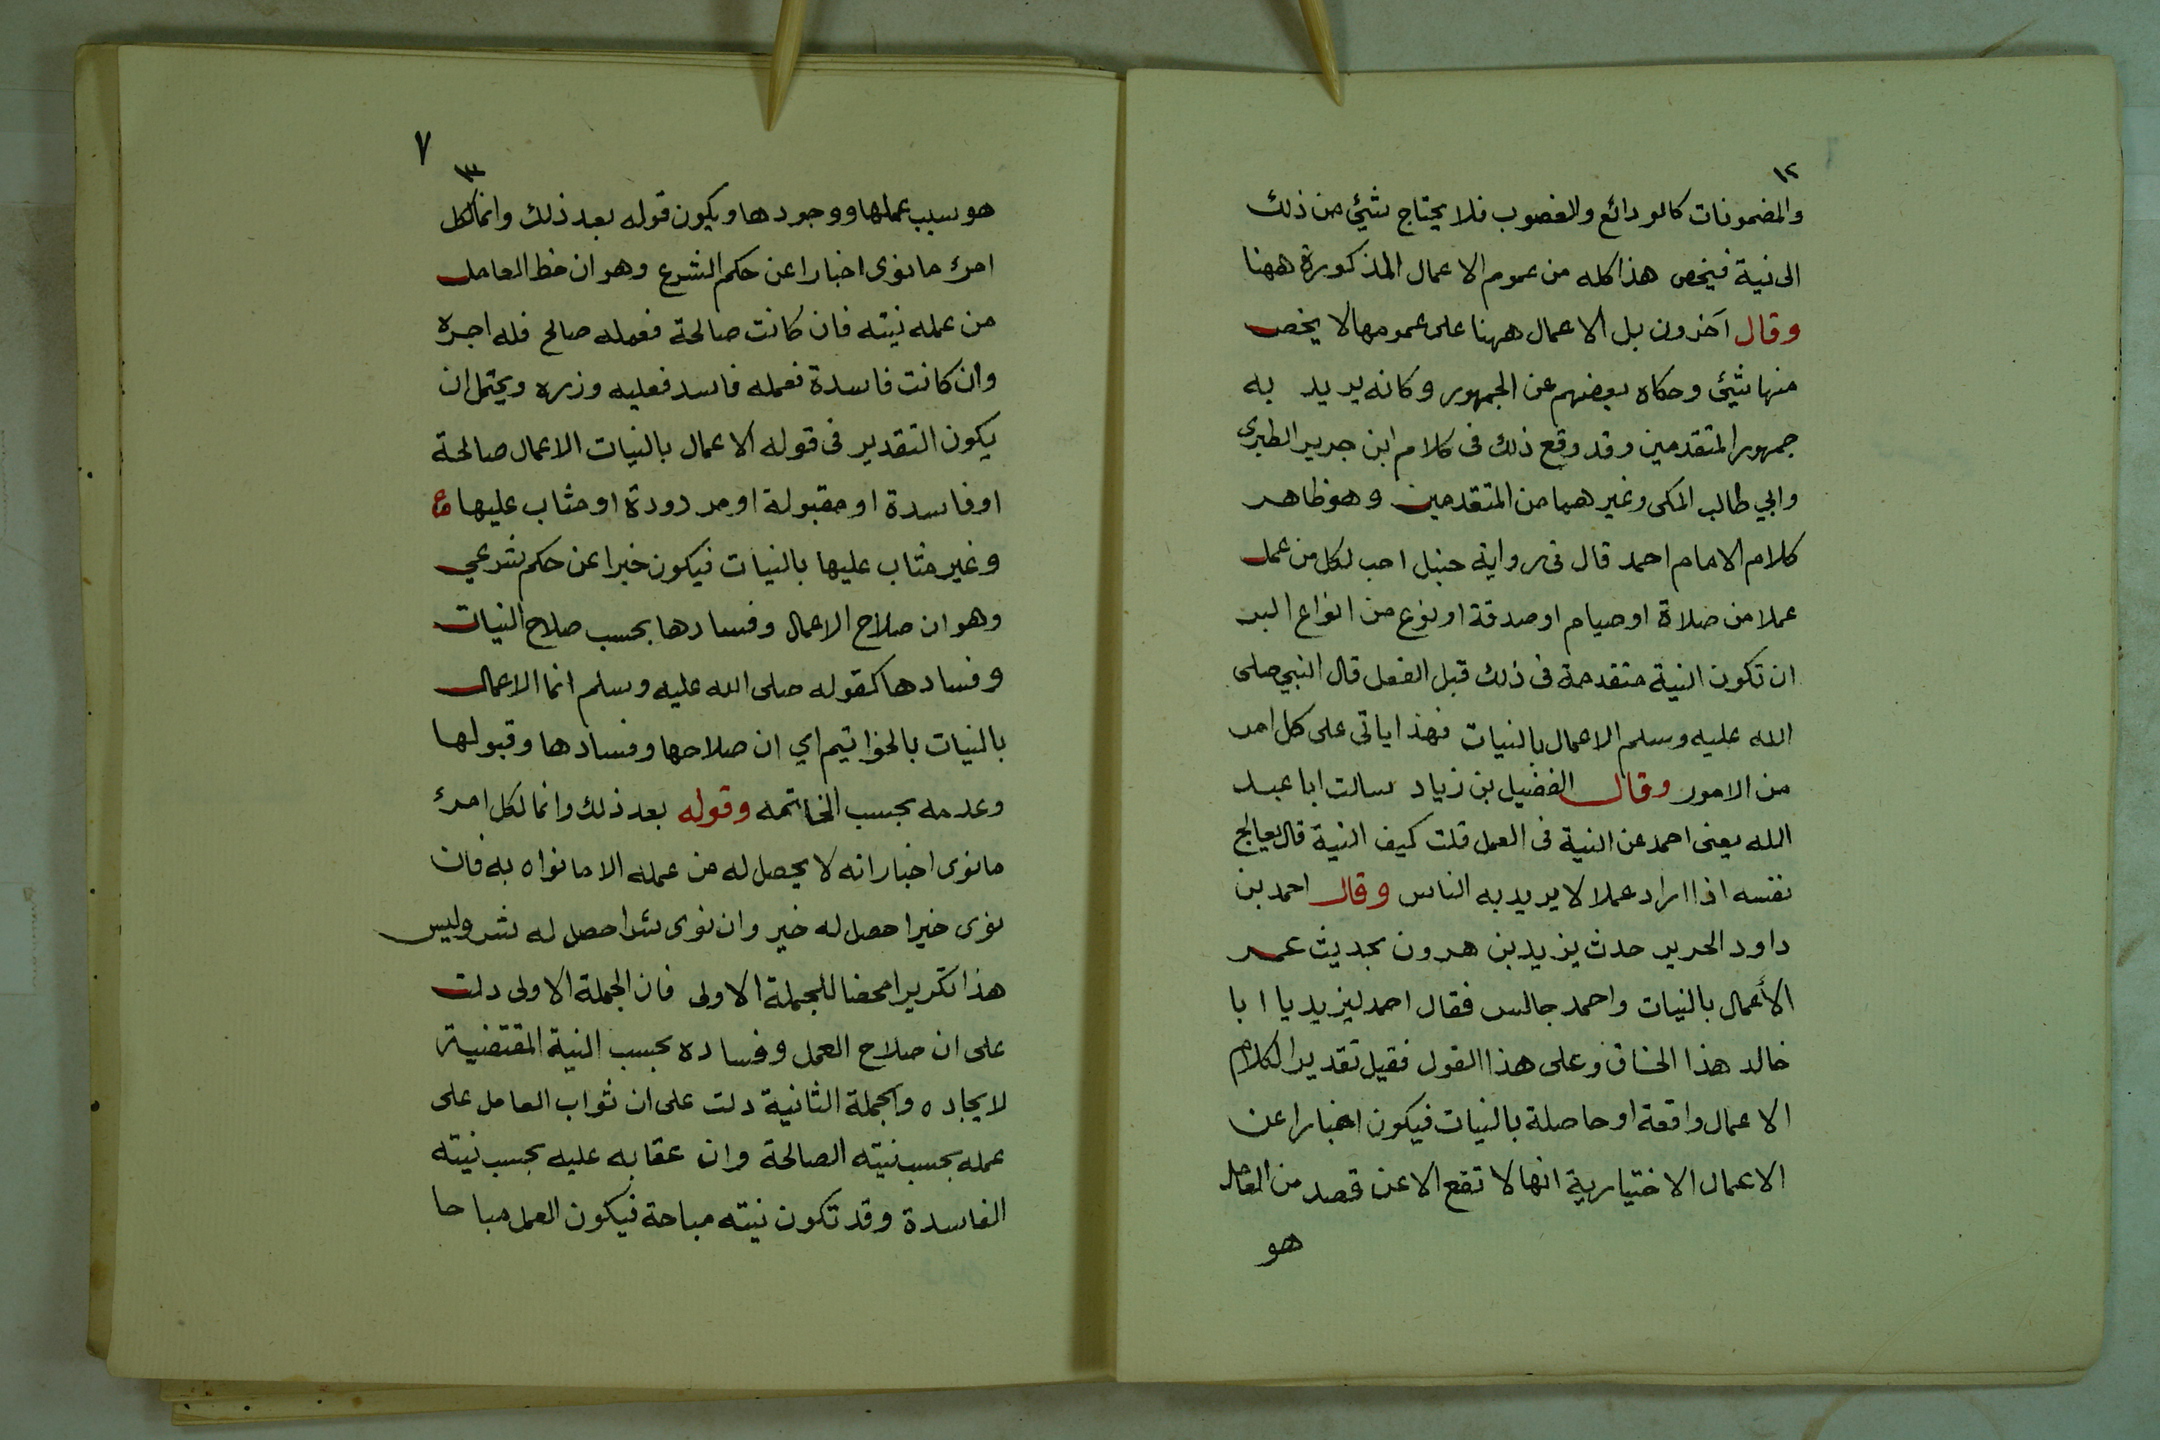 ١٢
والمضمونات كالودائع والغصوب فلا يحتاج شئ من ذلك
الى نية فيخص هذا كله من عموم الاعمال المذكورة ههنا
وقال آخرون بل الاعمال ههنا على عمومها لا يخص
منها شئ وحكاه بعضهم عن الجمهور وكانه يريد به
جمهور المتقدمين وقد وقع ذلك فى كلام ابن جرير الطبرى
وابي طالب المكى وغيرهما من المتقدمين وهو ظاهر
كلام الامام احمد قال فى رواية حنبل احب لكل من عمل
عملا من صلاة او صيام او صدقة او نوع من انواع البر
ان تكون النية متقدمة فى ذلك قبل الفعل قال النبي صلى
الله عليه وسلم الاعمال بالنيات فهذا ياتى على كل امر
من الامور وقال الفضيل بن زياد سالت ابا عبد
الله يعنى احمد عن النية فى العمل قلت كيف النية قال يعالج
نفسه اذا اراد عملا لا يريد به الناس وقال احمد بن
داود الحربر حدث يزيد بن هرون بحديث عمر
الأعمال بالنيات واحمد جالس فقال احمد ليزيد يا ابا
خالد هذا الخناق وعلى هذا القول فقيل تقدير الكلام
الاعمال واقعة او حاصلة بالنيات فيكون اخبارا عن
الاعمال الاختيارية انها لا تقع الا عن قصد من العامل
هو
٧
١٣
هو سبب عملها ووجودها ويكون قوله بعد ذلك وانما لكل
امرء ما نوى اخبارا عن حكم الشرع وهو ان حظ العامل
من عمله نيته فان كانت صالحة فعمله صالح فله اجره
وان كانت فاسدة فعمله فاسد فعليه وزره ويحتمل ان
يكون التقدير فى قوله الاعمال بالنيات الاعمال صالحة
او فاسدة او مقبولة او مردودة او مثاب عليها
وغير مثاب عليها بالنيات فيكون خبرا عن حكم شرعي
وهو ان صلاح الاعمال وفسادها بحسب صلاح النيات
وفسادها كقوله صلى الله عليه وسلم انما الاعمال
بالنيات بالخواتيم اي ان صلاحها وفسادها وقبولها
وعدمه بحسب الخاتمه وقوله بعد ذلك وانما لكل امرء
ما نوى اخبار انه لا يحصل له من عمله الا ما نواه به فان
نوى خيرا حصل له خير وان نوى شرا حصل له شر وليس
هذا تكريرا محضا للجملة الاولى فان الجملة الاولى دلت
على ان صلاح العمل وفساده بحسب النية المقتضية
لايجاده والجملة الثانية دلت على ان ثواب العامل على
عمله بحسب نيته الصالحة وان عقابه عليه بحسب نيته
الفاسدة وقد تكون نيته مباحة فيكون العمل مباحا